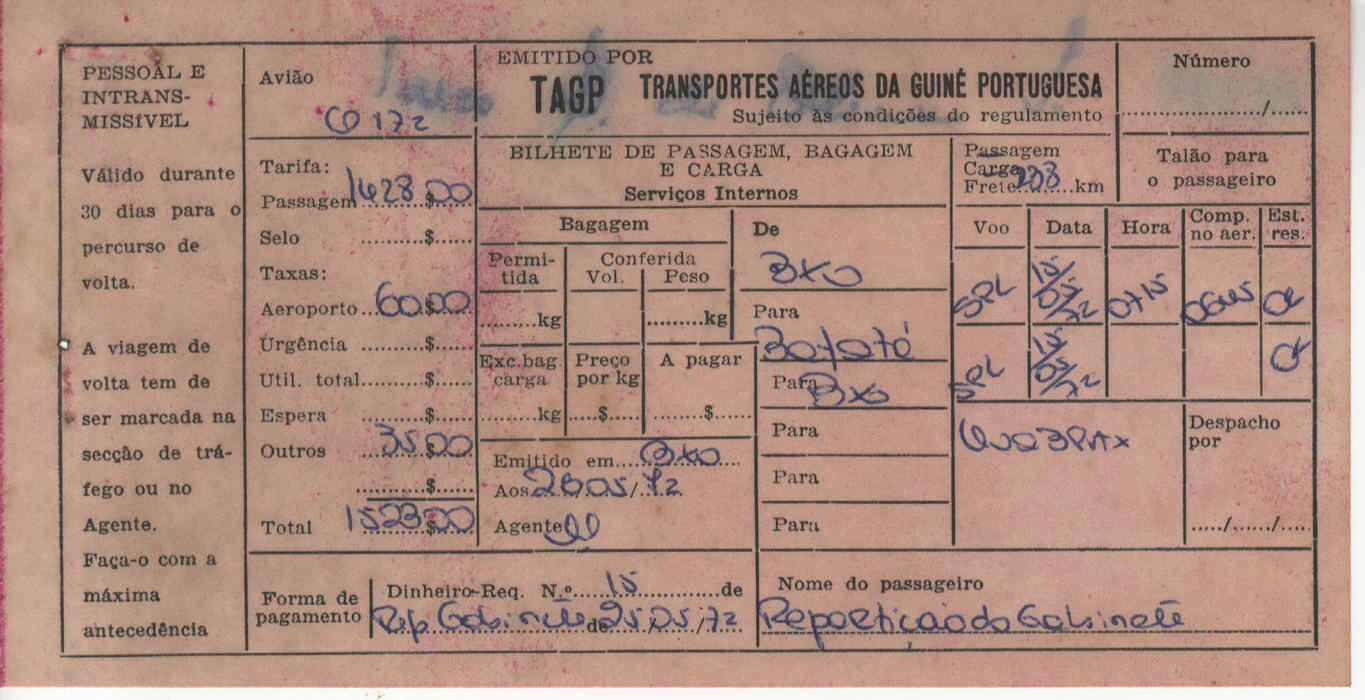 PESSOAL E
INTRANS-
MISSÍVEL
Válido durante
30 dias para o
percurso de
volta.
A viagem de
volta tem de
ser marcada na
secção de trá-
fego ou no
Agente.
Faça-o com a
máxima
antecedência
Avião
172
Tarifa:
Passagem 1428$00
Selo ..........$......
Taxas:
Aeroporto 60$00
Urgência ..........$......
Util. total..........$......
Espera ..........$......
Outros 35$00
..........$......
Total 1523$00
EMITIDO POR
TAGP TRANSPORTES AÉREOS DA GUINÉ PORTUGUESA
Sujeito às condições do regulamento
Número
..................../.....
BILHETE DE PASSAGEM, BAGAGEM
E CARGA
Serviços Internos
Passagem
Carga
Frete ..... km
Talão para
o passageiro
Bagagem
Permi-
tida
Conferida
Vol. Peso
.........kg .........kg
Exc.bag.
carga
Preço
por kg
A pagar
.........kg .....$..... ........$......
Emitido em BXO
Aos 2605/72
Agente
De
BXO
Para
Bafatá
Para BXO
Para
Para
Para
Voo Data Hora Comp. no aer. Est. res.
SPL 15/05/72 0715 0645 OK
SPL 15/05/72 OK
Despacho
por
...../....../.....
Forma de
pagamento
Dinheiro-Req. N.º 15 de
Rep. Gabinete de 25.05./72
Nome do passageiro
Repartição do Gabinete